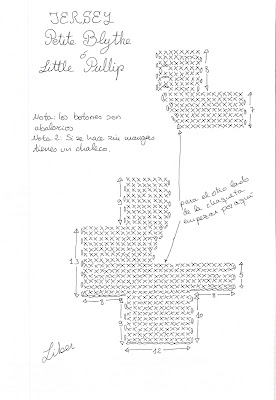 JERSEY
Petite Blythe
ó
Little Pullip
Nota: los botones son
abalorios
Nota 2: Si se hace sin mangas
tienes un chaleco.
7
para el otro lado
de la chaqueta
empezar por aquí
9
13
8
9
8
10
12
Liber